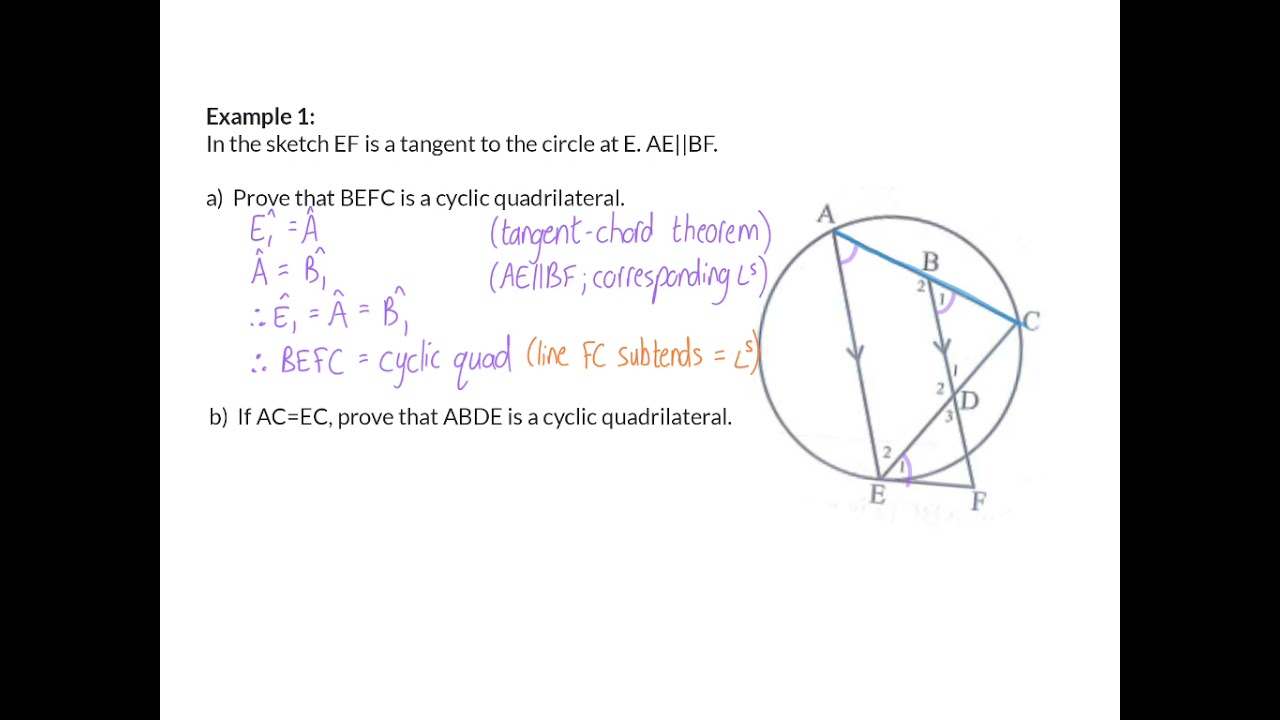 Example 1:
In the sketch EF is a tangent to the circle at E. AE||BF.
a) Prove that BEFC is a cyclic quadrilateral.
Ê₁ = Â (tangent-chord theorem)
Â = B̂₁ (AE||BF; corresponding ∠ˢ)
∴ Ê₁ = Â = B̂₁
∴ BEFC = cyclic quad (line FC subtends = ∠ˢ)
b) If AC=EC, prove that ABDE is a cyclic quadrilateral.
A
B
2 1
C
1
2 D
3
2
1
E
F